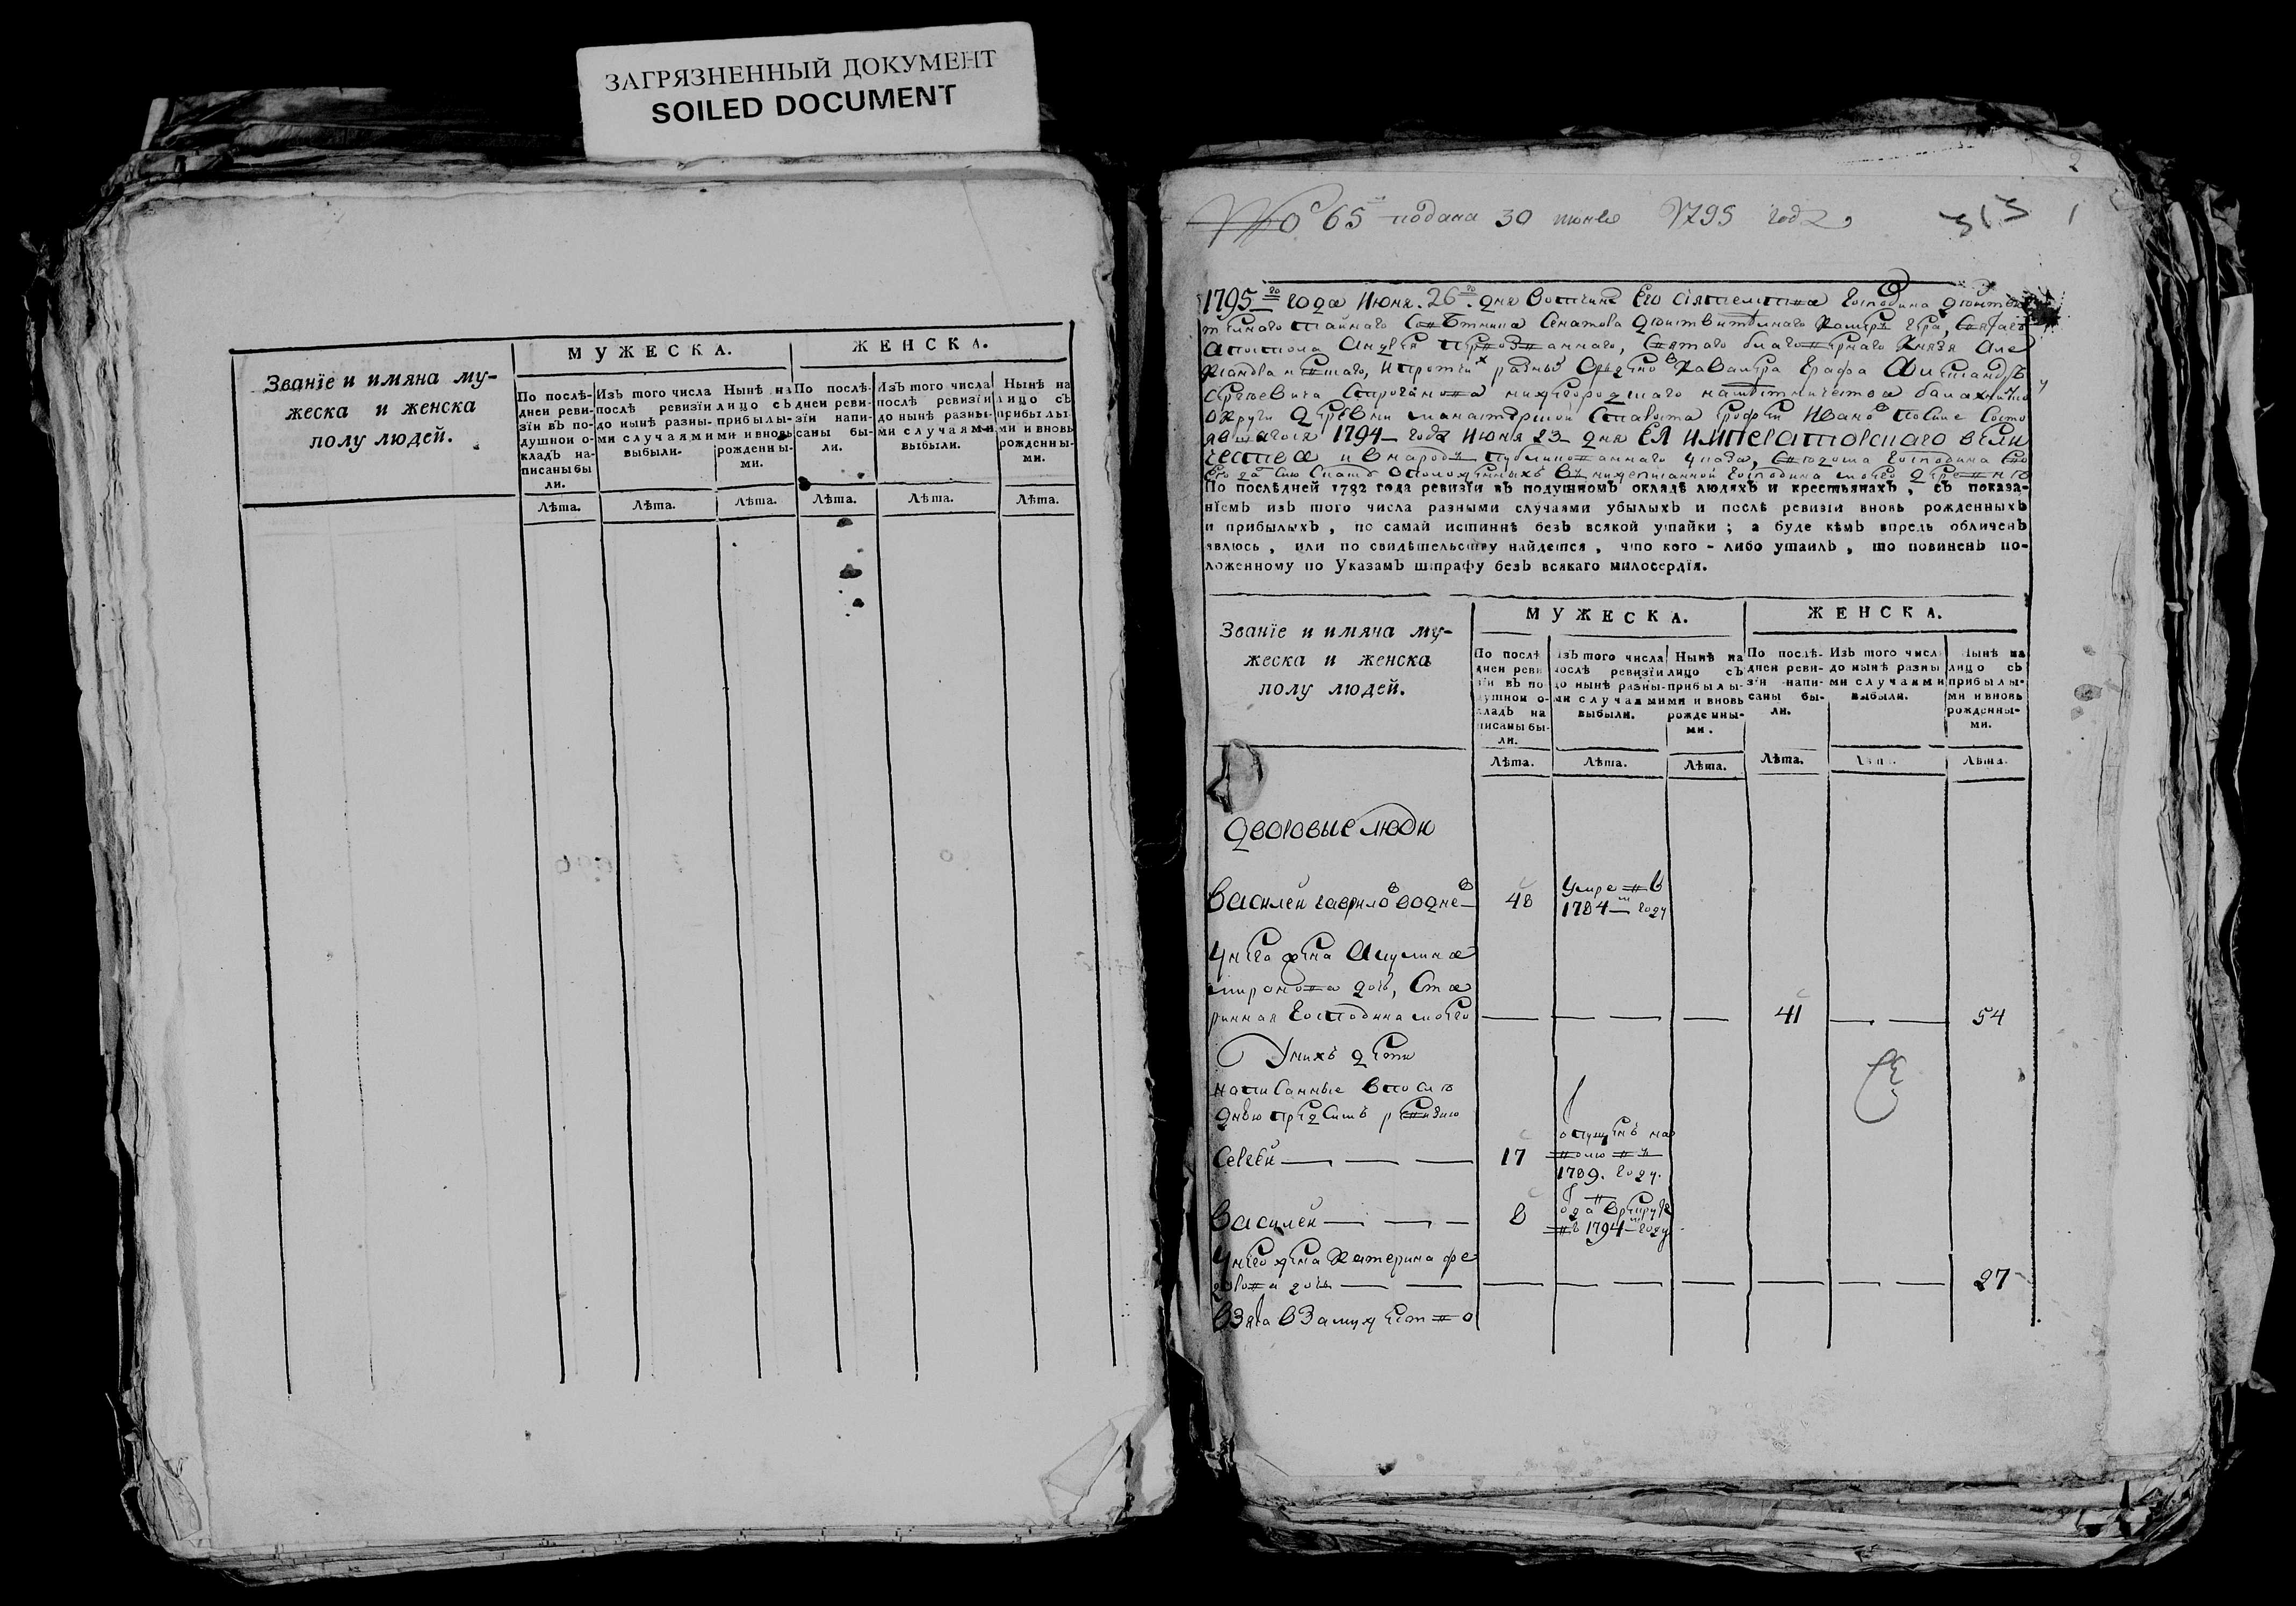 ЗАГРЯЗНЕННЫЙ ДОКУМЕНТ
SOILED DOCUMENT
Званїе и имяна му-
жеска и женска
полу людей.
МУЖЕСКА.
ЖЕНСКА.
По послѣ-
дней реви-
зїи въ по-
душной о-
кладъ на-
писаны бы
ли.
Изъ того числа
послѣ ревизїи
до нынѣ разны-
ми случаями
выбыли.
Нынѣ на
лицо съ
прибылы-
ми и вновь
рожденны-
ми.
По послѣ-
дней реви-
зїи напи-
саны бы-
ли.
Изъ того числа
послѣ ревизїи
до нынѣ разны-
ми случаями
выбыли.
Нынѣ на
лицо съ
прибылы-
ми и вновь
рожденны-
ми.
Лѣта. Лѣта. Лѣта. Лѣта. Лѣта. Лѣта.
№ 65 подана 30 июня 1795 года
313 1
1795го года Июня 26го дня вотчины Его сіятельства Господина действи
тельнаго тайнаго Советника Сенатора действительнаго Камергера, Святаго
апостола Андрея первозваннаго, Святаго благовернаго Князя Але
ксандра невскаго, и протчих разных Орденов Кавалера Графа Александра
Сергеевича Строганова нижегородскаго наместничества балахнинской
округи деревни Староста Ерофей Иванов по силе состо
явшагося 1794 года Июня 23 дня ЕЯ ИМПЕРАТОРСКАГО вели
чества и в народ публикованнаго указа,
По послѣдней 1782 года ревизїи въ подушномъ окладѣ людяхъ и крестьянахъ, съ показа-
нїемъ изъ того числа разными случаями убылыхъ и послѣ ревизїи вновь рожденныхъ
и прибылыхъ, по самой истиннѣ безъ всякой утайки; а буде кѣмъ впредь обличенъ
явлюсь, или по свидѣтельству найдется, что кого-либо утаилъ, то повиненъ по-
ложенному по Указамъ штрафу безъ всякаго милосердїя.
Званїе и имяна му-
жеска и женска
полу людей.
МУЖЕСКА.
ЖЕНСКА.
По послѣ
дней реви
зїи въ по
душной о-
кладъ на
писаны бы-
ли.
Изъ того числа
послѣ ревизїи
до нынѣ разны-
ми случаями
выбыли.
Нынѣ на
лицо съ
прибылы-
ми и вновь
рожденны-
ми.
По послѣ-
дней реви-
зїи напи-
саны бы-
ли.
Изъ того числа
до нынѣ разны
ми случаями
выбыли.
Нынѣ на
лицо съ
прибылы-
ми и вновь
рожденны-
ми.
Лѣта. Лѣта. Лѣта. Лѣта. Лѣта. Лѣта.
дворовые люди
василей гаврилов 48 умре в
1784м году
у него жена Акулина
миронова дочь, Ста
ринная господина моего 41 54
у них дети
написанные в после
днюю пред сим ревизию
Сергей 17 отпущен на
волю в
1789. году.
василей 8 отдан в рекруты
в 1794м году
у него жена Катерина фе
дорова дочь 27
взята в замужество